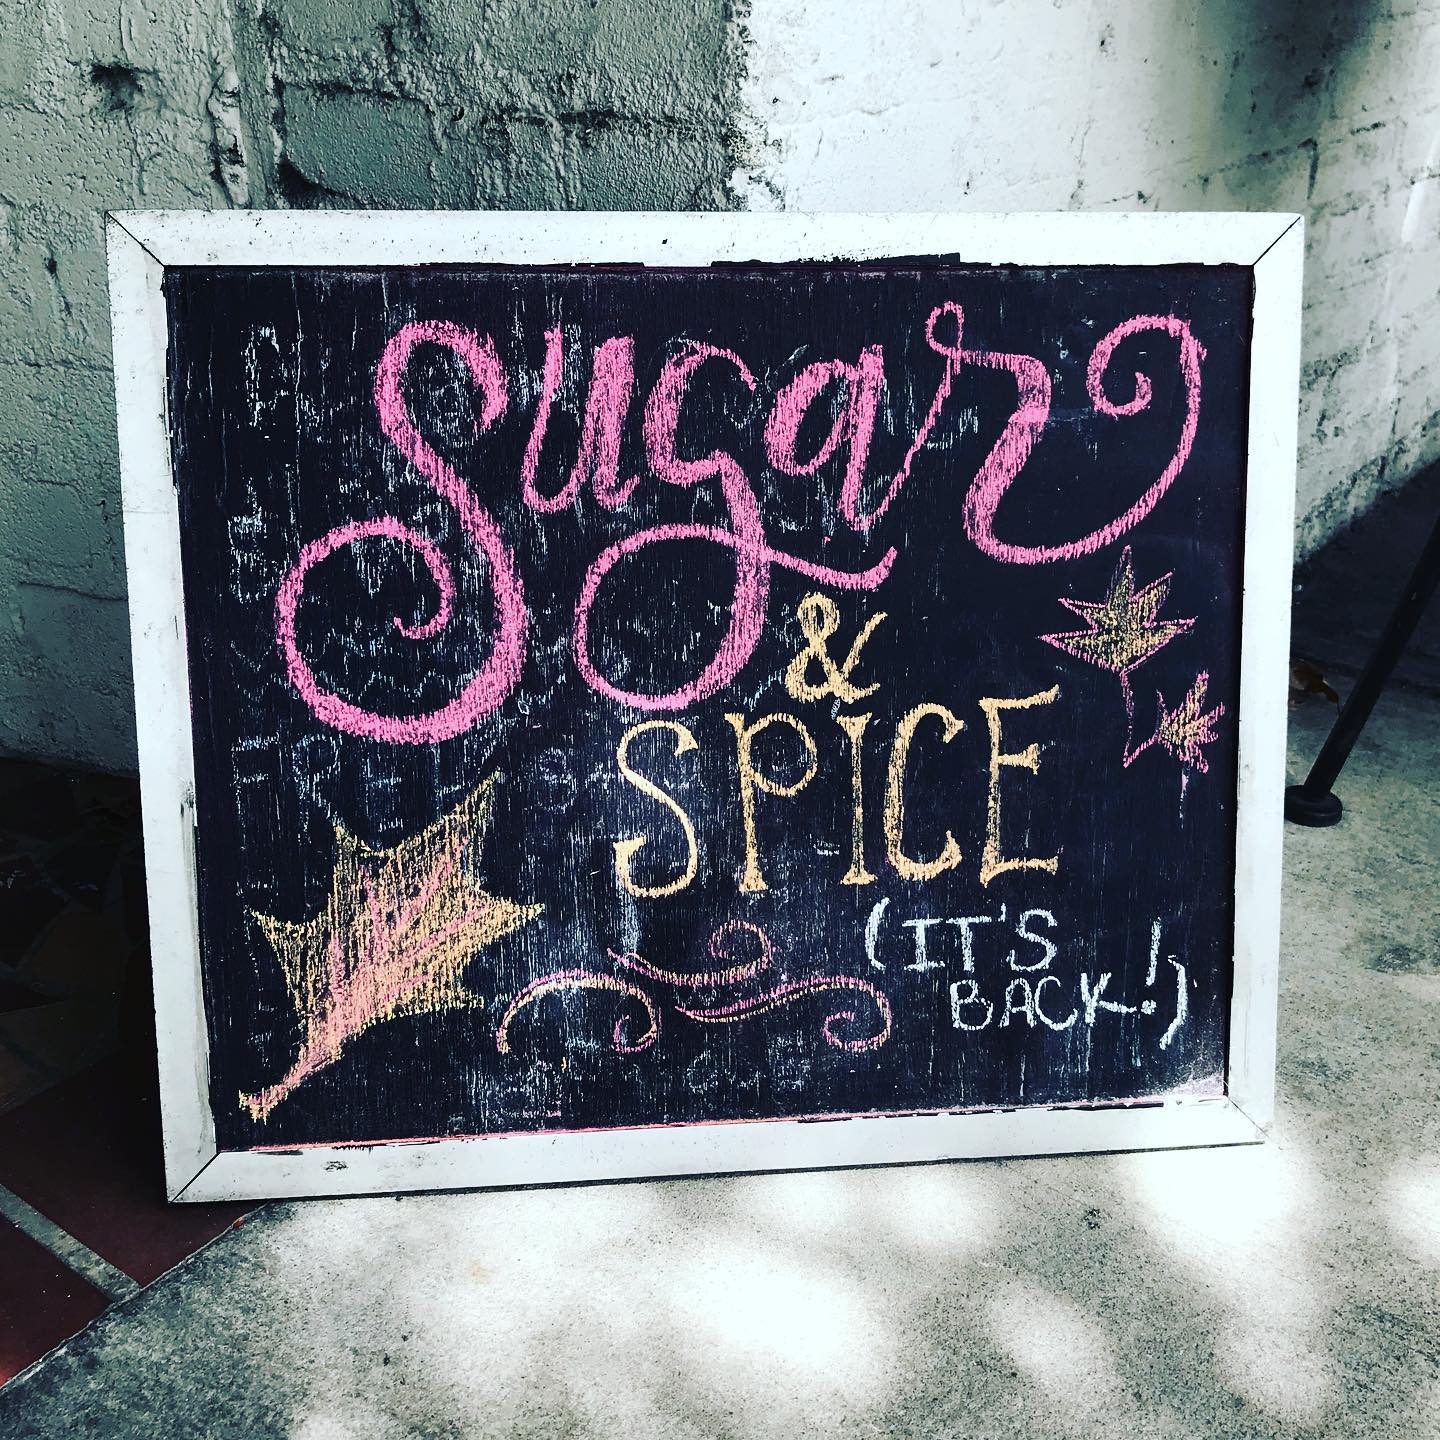 Sugar
&
SPICE
(IT'S
BACK!)